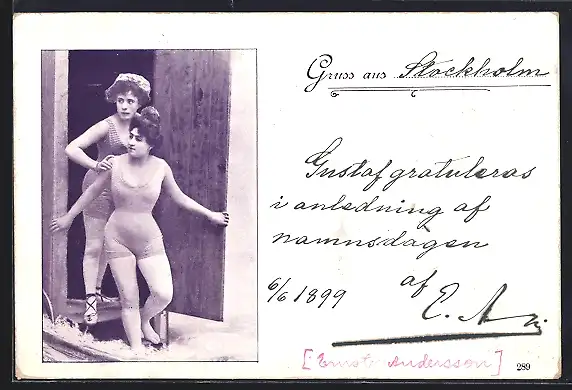 Gruss aus Stockholm
Gustaf gratuleras
i anledning af
namnsdagen
6/6 1899 af
E. A
[Ernst Andersson]
289